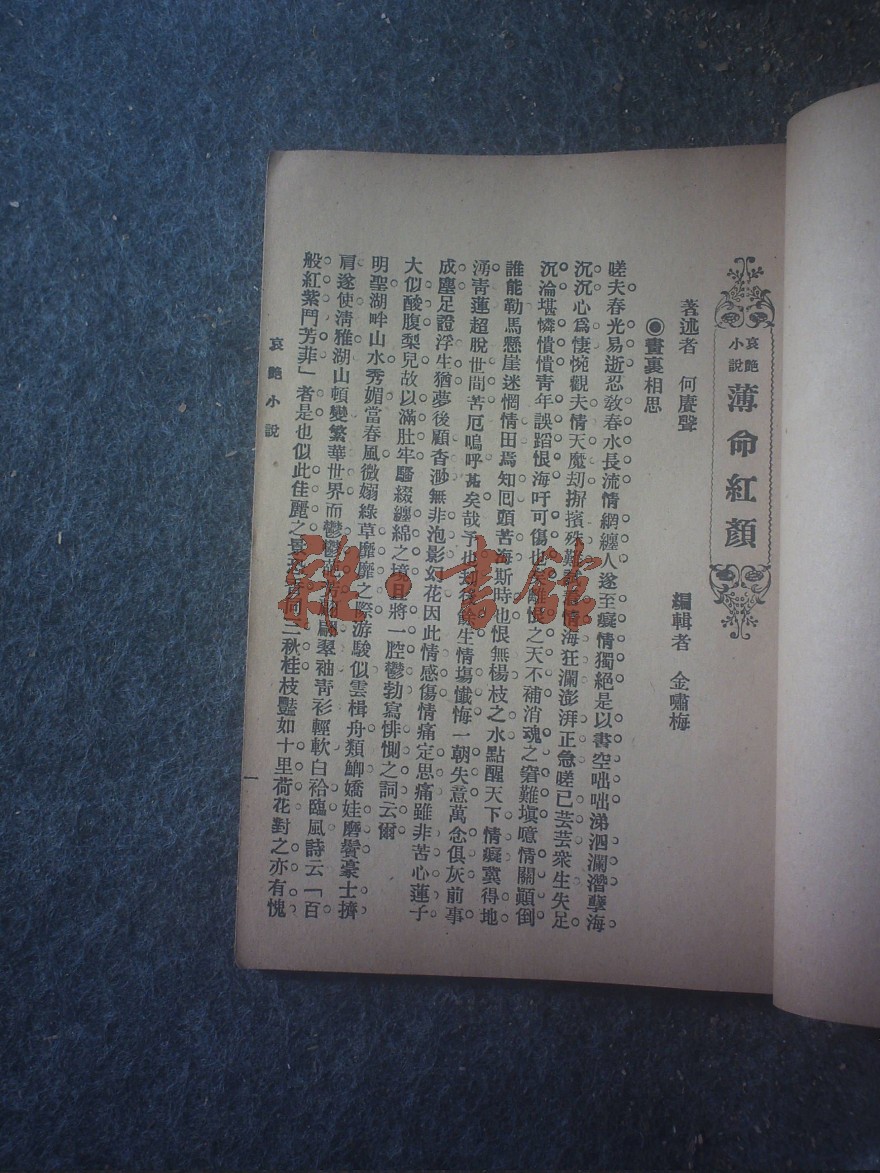 哀艷小說 薄命紅顏
著述者 何賡聲 編輯者 金嘯梅
◉畫裏相思
嗟夫春光易逝忍敎春水長流情網纏人遂至癡情獨絕是以書空咄咄涕泗瀾潸孽海
沉沉心爲悽惋觀夫情天魔劫摒擋殊難 情海狂瀾澎湃正急嗟已芸芸衆生失足
沉淪堪憐憒憒靑年誤蹈恨海吁可傷也矣離恨之天不補消魂之窘難塡噫情關顚倒
誰能勒馬懸崖迷惘情田焉知囘頭苦海斯時也恨無楊枝之水點醒天下情癡冀得地
湧靑蓮超脫世間苦厄嗚呼甚矣哉予也劫後餘生情塲懺悔一朝失意萬念俱灰前事
成塵足證浮生猶夢後顧杳渺無非泡影幻花因此情感傷情痛定思痛雖非苦心蓮子
大似酸腹梨兒故以滿肚牢騷綴纏綿之境且將一腔鬱勃寫悱惻之詞云爾
明聖湖畔山水秀媚當春風微嫋綠草靡靡之際游駿似雲楫舟類鯽嬌娃磨鬢豪士擠
肩遂使淸雅湖山頓變繁華世界而鬱鬱 翠袖靑衫輕軟白袷臨風詩云「百
般紅紫鬥芳菲」者是也似此佳麗之景 三秋桂枝豔如十里荷花對之亦有愧
哀艷小說
一
雜·書館